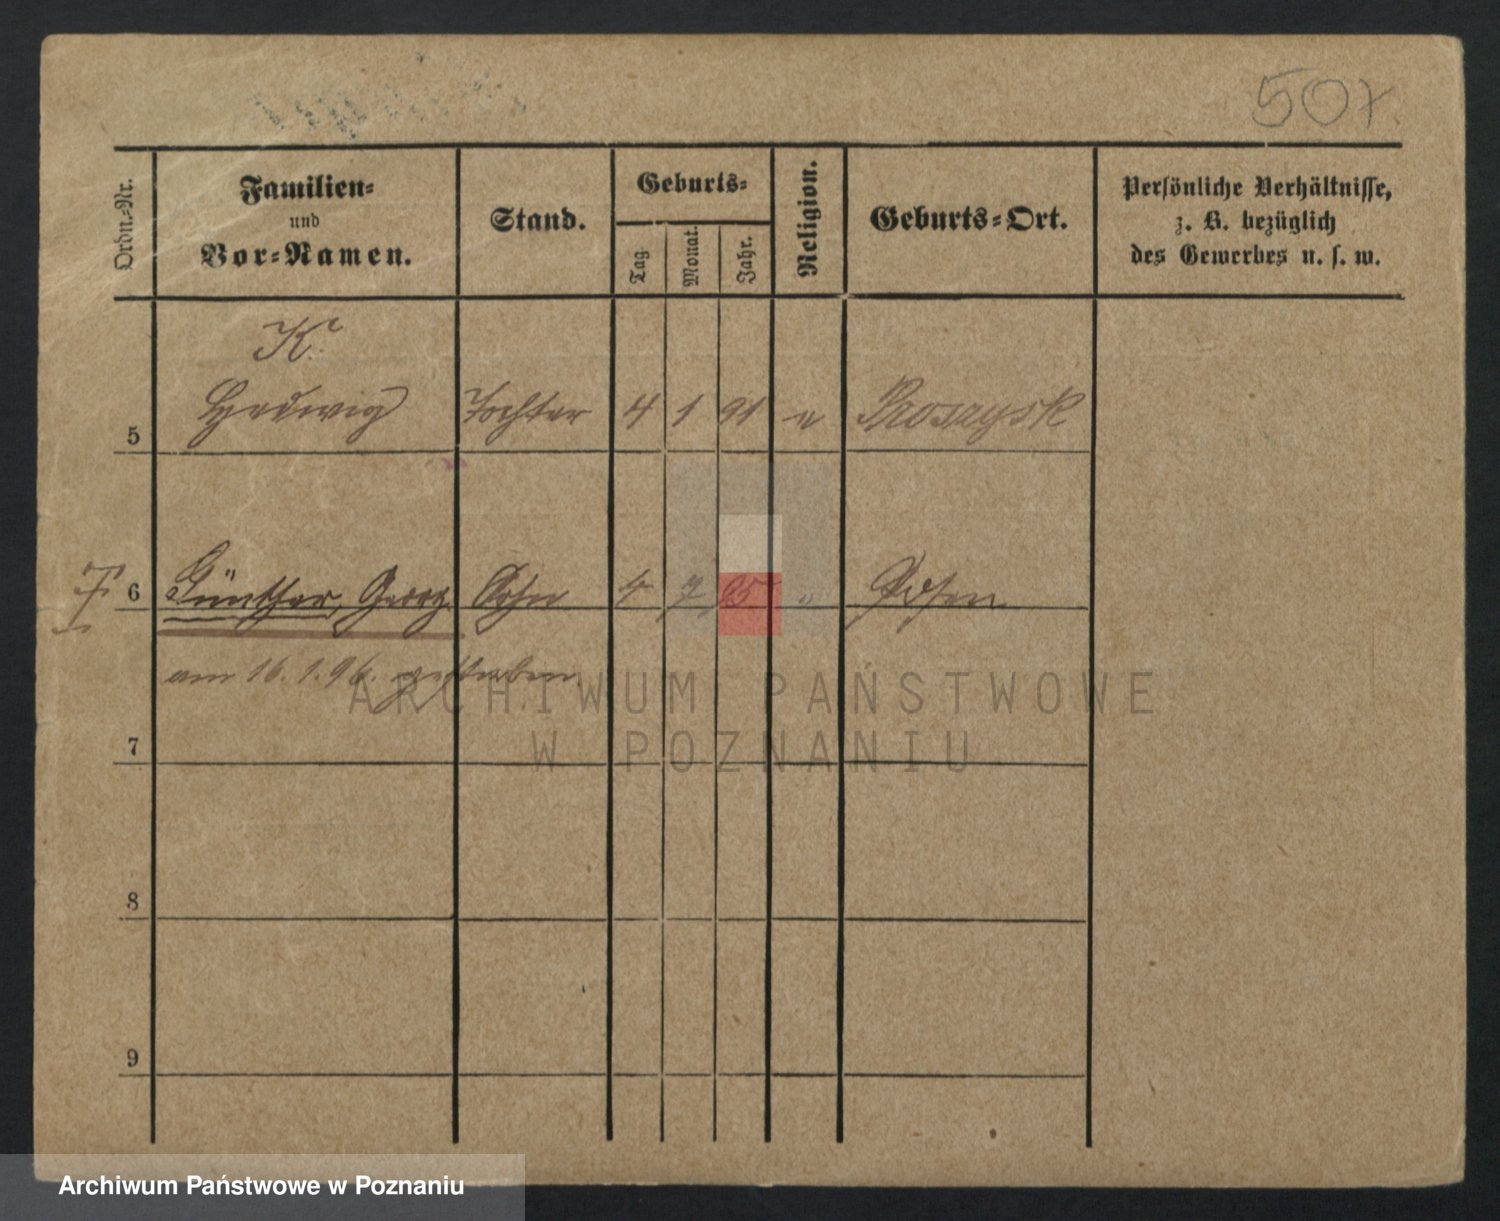 507.
Ordn.-Nr.
Familien-
und
Vor-Namen.
Stand.
Geburts-
Tag
Monat.
Jahr.
Religion.
Geburts-Ort.
Persönliche Verhältnisse,
z. B. bezüglich
des Gewerbes u. s. w.
K.
5 Hedwig Tochter 4 1 91 e
6 Günther, Georg Sohn 4 7 95 " Posen
am 16.1.96. gestorben.
7
8
9
ARCHIWUM PAŃSTWOWE
W POZNANIU
Archiwum Państwowe w Poznaniu